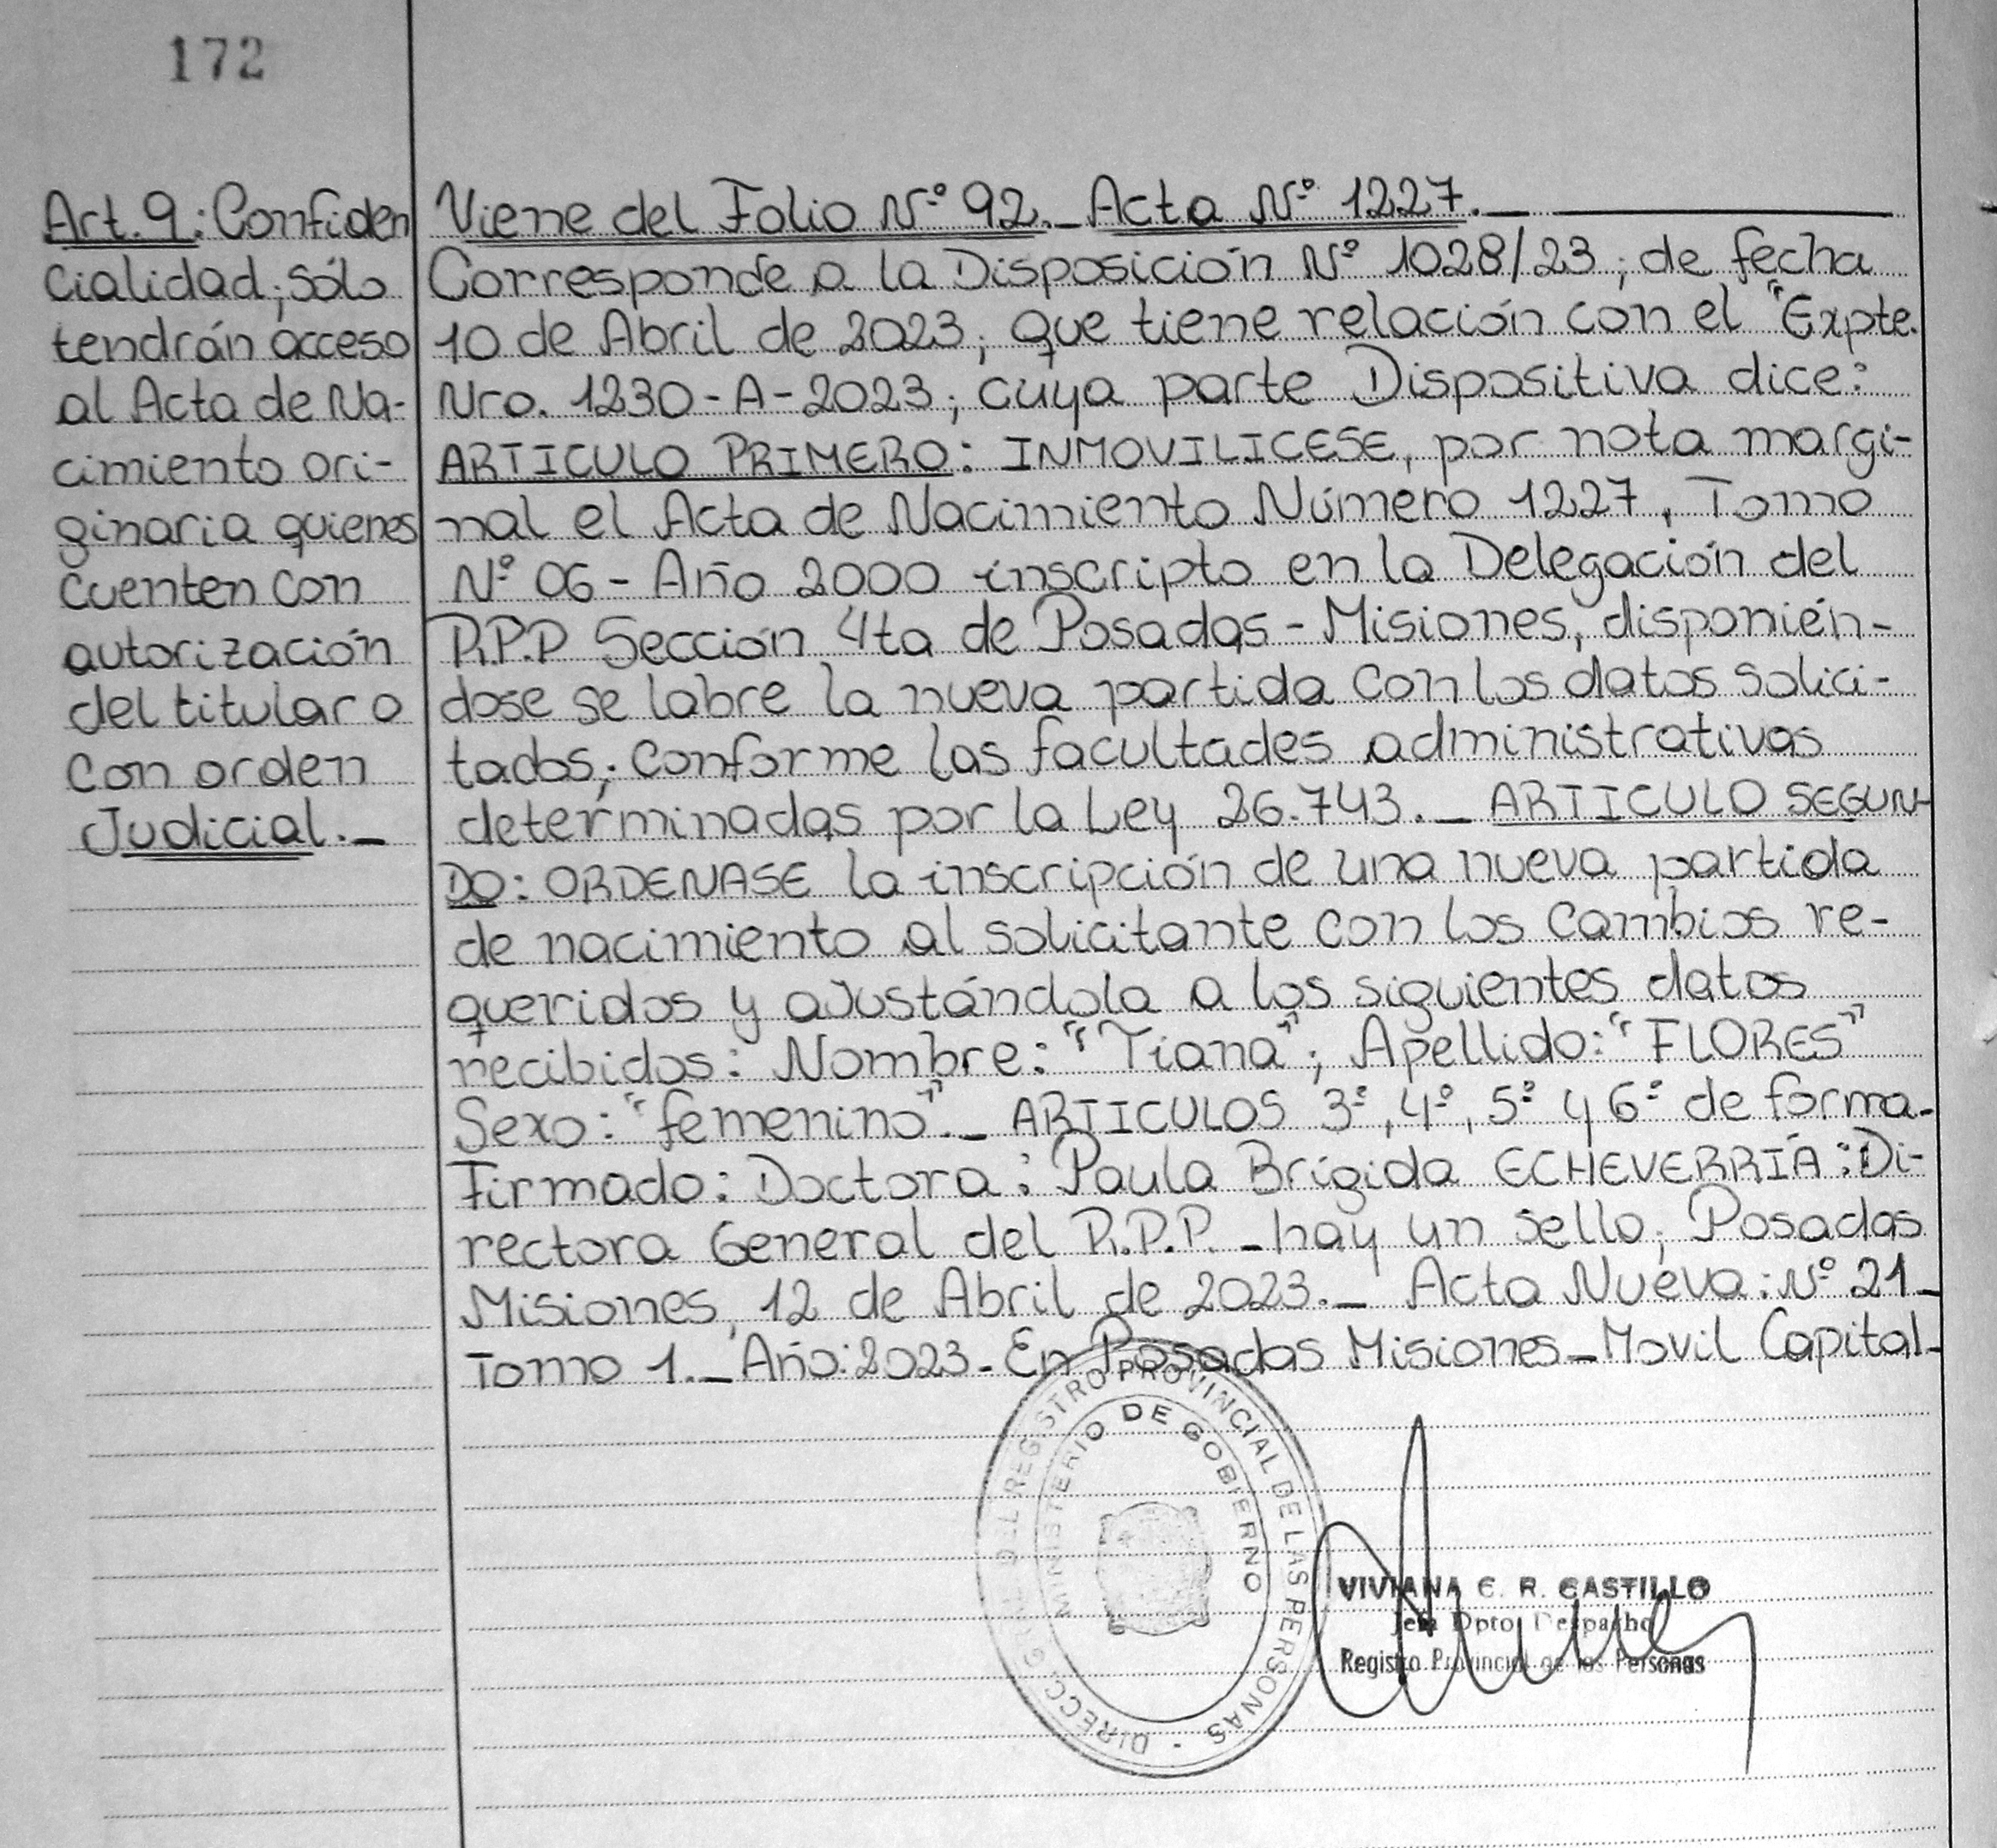 172
Art. 9: Confiden
cialidad; sólo
tendrán acceso
al Acta de Na-
cimiento ori-
ginaria quienes
cuenten con
autorización
del titular o
con orden
Judicial._
Viene del Folio Nº 92._ Acta Nº 1227._
Corresponde a la Disposición Nº 1028/23; de fecha
10 de Abril de 2023; que tiene relación con el "Expte.
Nro. 1230-A-2023; cuya parte Dispositiva dice:
ARTICULO PRIMERO: INMOVILICESE, por nota margi-
nal el Acta de Nacimiento Número 1227, Tomo
Nº 06 - Año 2000 inscripto en la Delegación del
R.P.P Sección 4ta de Posadas - Misiones, disponién-
dose se labre la nueva partida con los datos solici-
tados; conforme las facultades administrativas
determinadas por la Ley 26.743._ ARTICULO SEGUN-
DO: ORDENASE la inscripción de una nueva partida
de nacimiento al solicitante con los cambios re-
queridos y ajustándola a los siguientes datos
recibidos: Nombre: "Tiana"; Apellido: "FLORES"
Sexo: "femenino"._ ARTICULOS 3º, 4º, 5º y 6º de forma-
Firmado: Doctora: Paula Brígida ECHEVERRÍA: Di-
rectora General del R.P.P. _ hay un sello; Posadas
Misiones, 12 de Abril de 2023._ Acta Nueva: Nº 21_
Tomo 1._ Año: 2023_ En Posadas Misiones_ Movil Capital_
DIRECC. GRAL. DEL REGISTRO PROVINCIAL DE LAS PERSONAS -
MINISTERIO DE GOBIERNO
VIVIANA E. R. CASTILLO
Jefa Dpto Despacho
Registro Provincial de las Personas